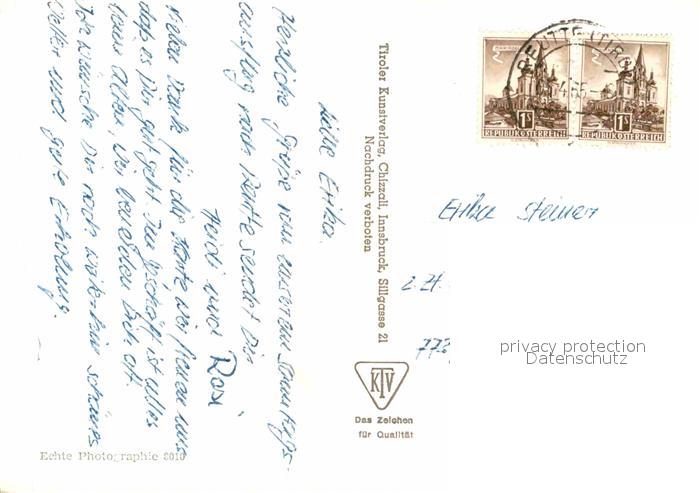 Liebe Erika.
Herzliche Grüße von unserem Sonntags-
ausflug nach Reutte sendet Dir
Heidi und Rosi.
Vielen Dank für die Karte wir freuen uns
daß es Dir gut geht. Im Geschäft ist alles
beim Alten, wir
Dich oft.
Ich wünsche Dir noch weiterhin schönes
Wetter und gute Erholung.
Echte Photographie 8010
Tiroler Kunstverlag, Chizzali, Innsbruck, Sillgasse 21
Nachdruck verboten
KTV
Das Zeichen
für Qualität
REUTTE, TIROL
1S
REPUBLIK ÖSTERREICH
1S
REPUBLIK ÖSTERREICH
Erika Steiner
z. Zt.
772
privacy protection
Datenschutz